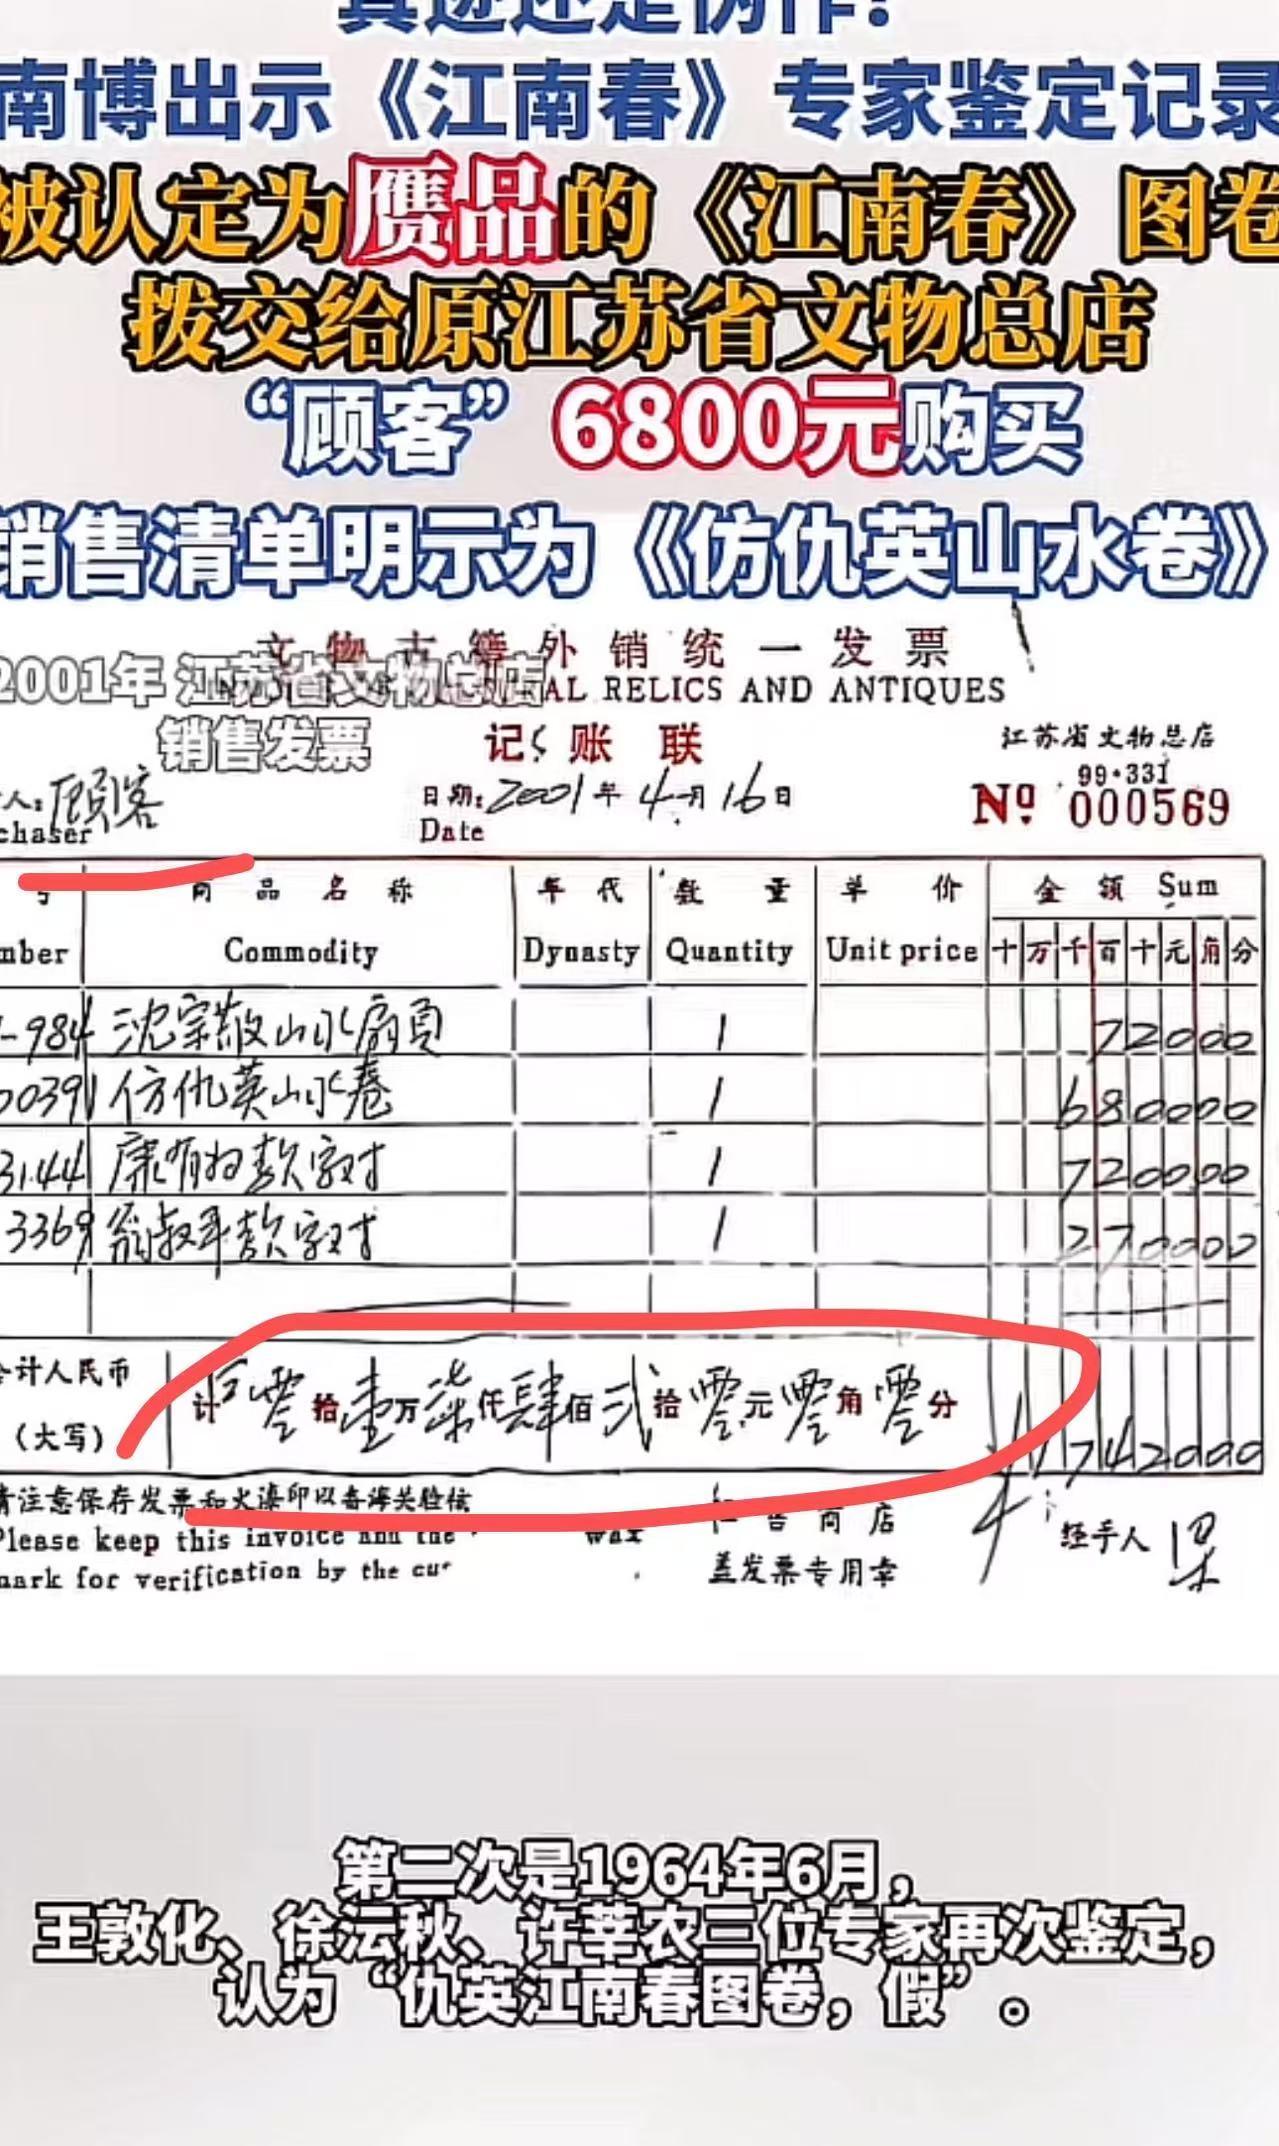 南博出示《江南春》专家鉴定记录
被认定为赝品的《江南春》图卷
拨交给原江苏省文物总店
“顾客”6800元购买
销售清单明示为《仿仇英山水卷》
文物古籍外销统一发票
2001年 江苏省文物总店
AL RELICS AND ANTIQUES
销售发票
记账联
江苏省文物总店
99·331
人:顾客
chaser
日期:2001年4月16日
Date
Nº 000569
号 商品名称 年代 数量 单价 金额 Sum
mber Commodity Dynasty Quantity Unit price 十万千百十元角分
-984 沈宗敬山水扇页 1 72000
00391 仿仇英山水卷 1 680000
3144 康有为款字对 1 720000
3369 翁叔平款字对 1 270000
计人民币
(大写)
计零拾壹万柒仟肆佰贰拾零元零角零分 1742000
请注意保存发票和火漆印以备海关验放
Please keep this invoice and the wax
mark for verification by the cu
售商店
盖发票专用章
经手人
第二次是1964年6月,
王敦化、徐沄秋、许莘农三位专家再次鉴定,
认为“仇英江南春图卷,假”。